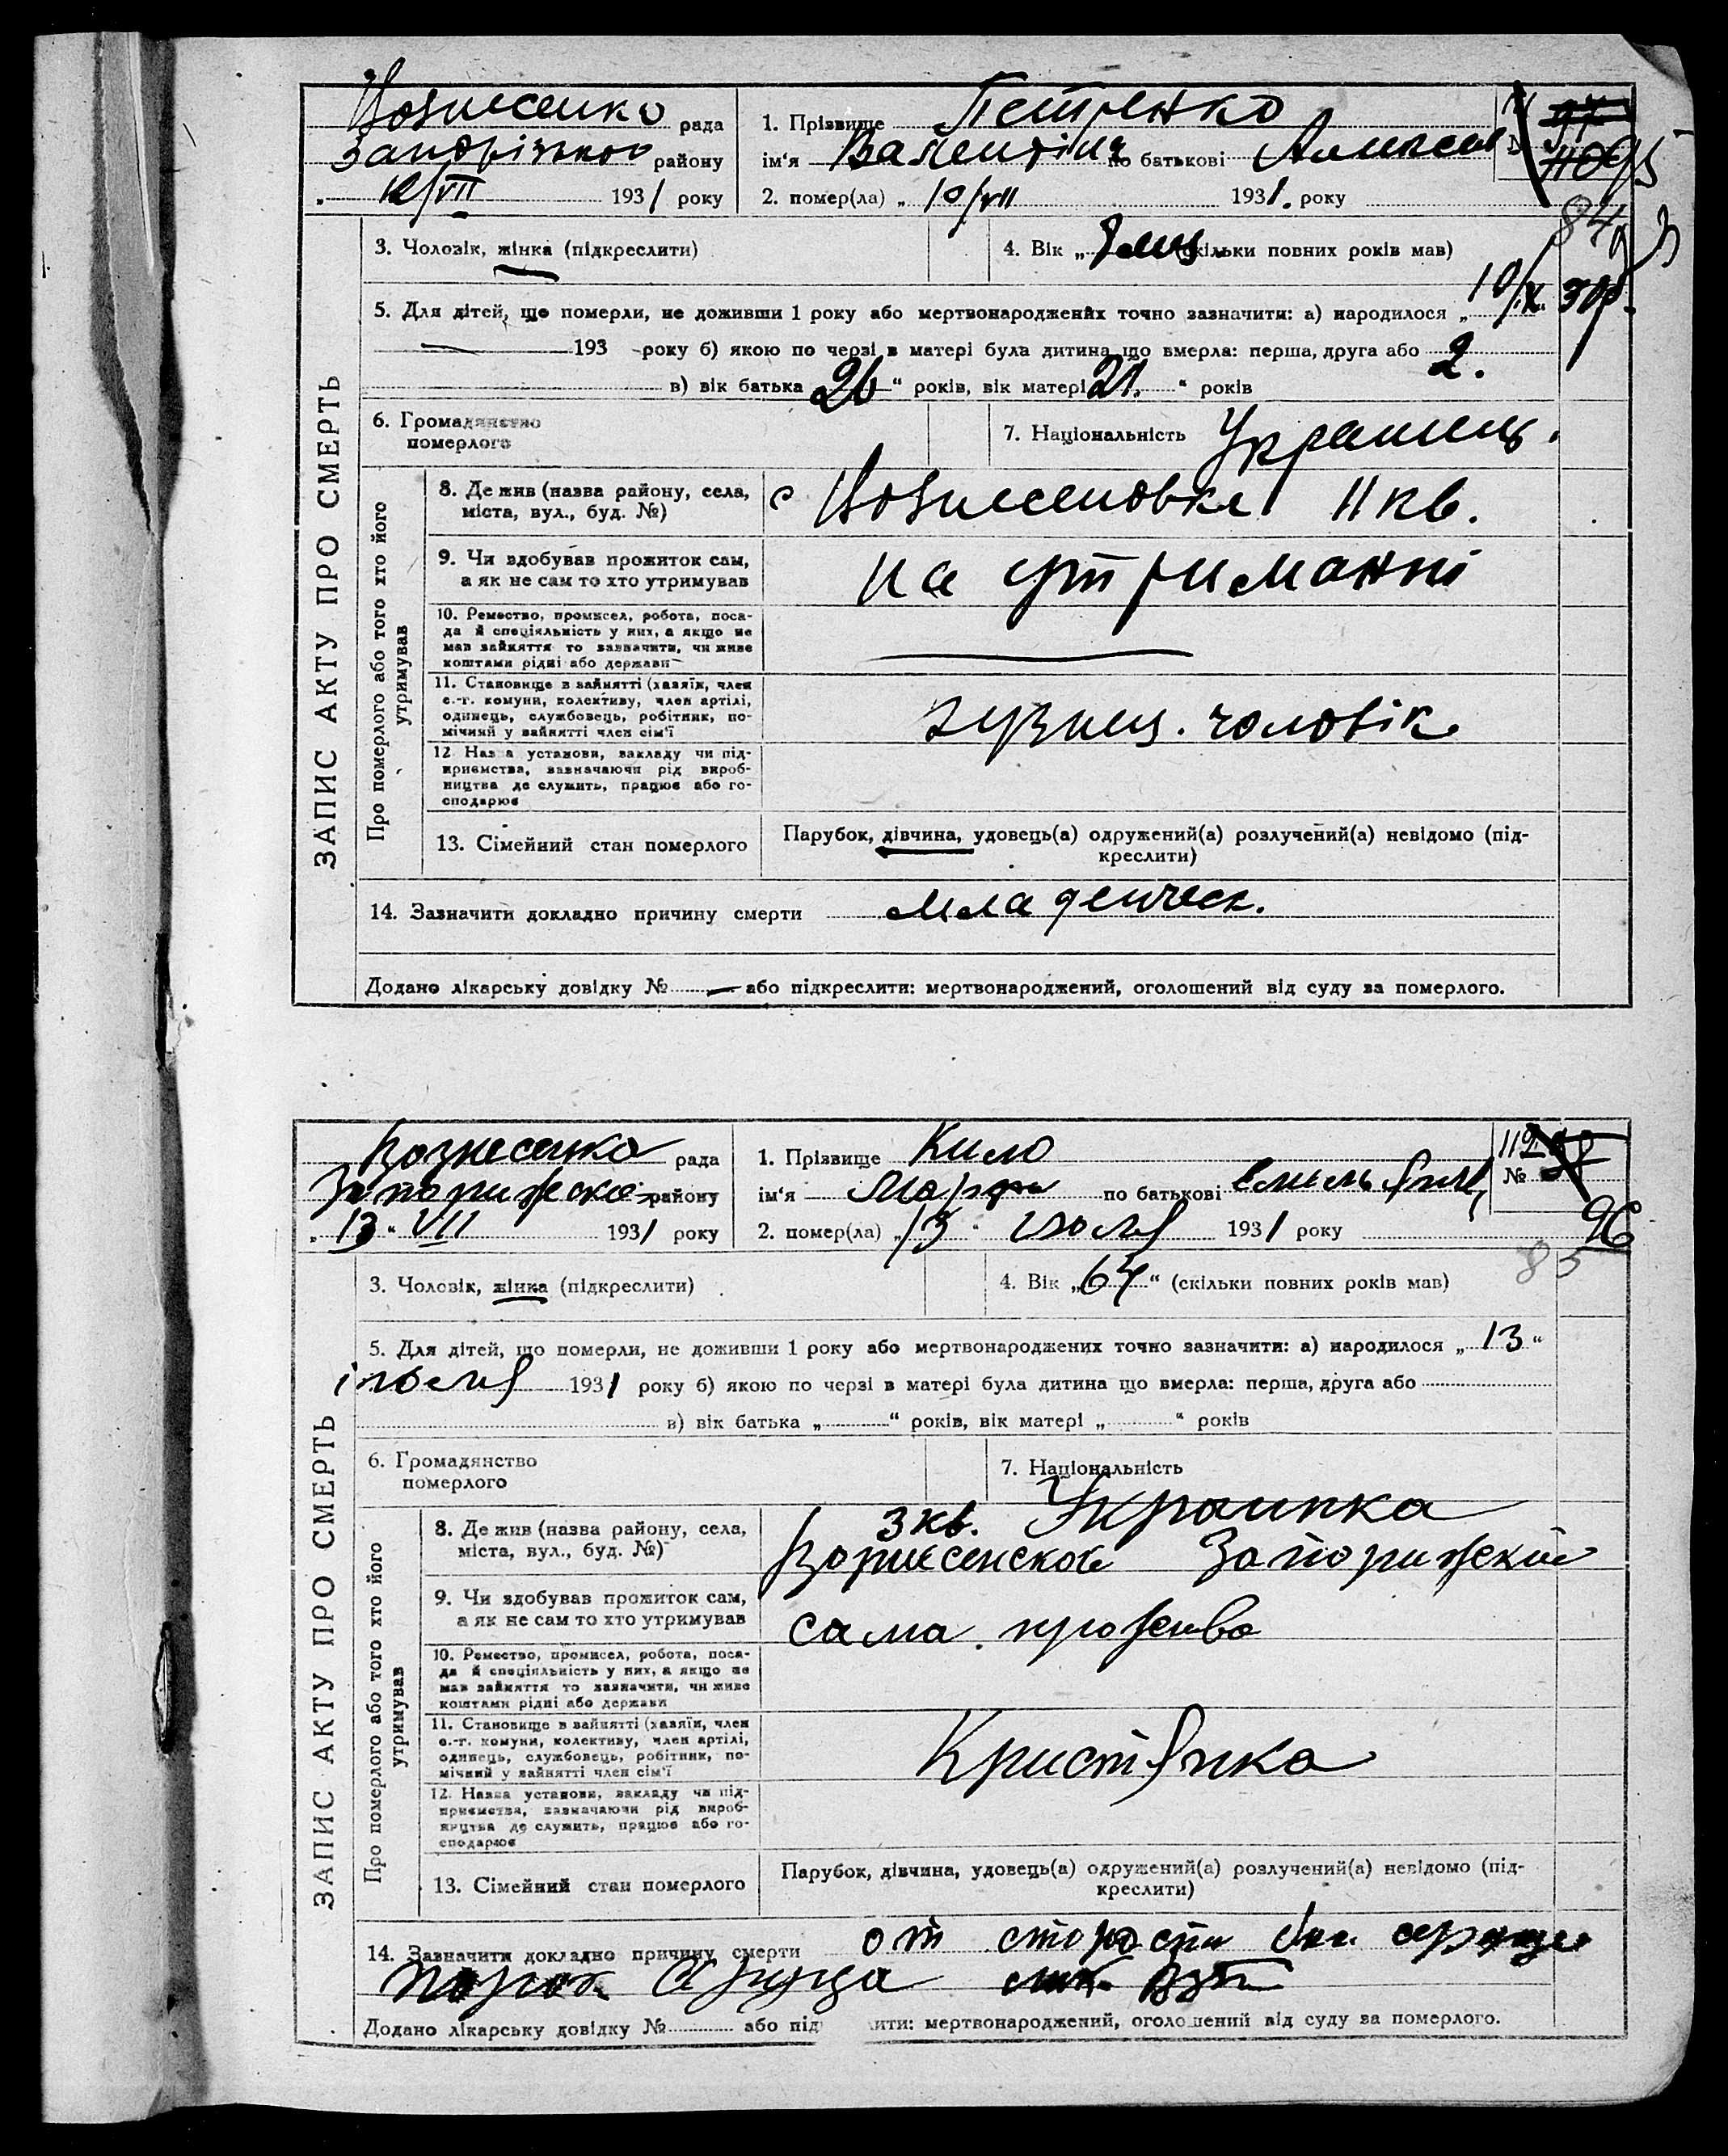 ЗАПИС АКТУ ПРО СМЕРТЬ
Вознесенко рада
Запорізького району
„ 12/VII 1931 року
1. Прізвище Петренко
ім‘я Валентіна по батькові Алексеев
2. помер(ла) „ 10/VII 1931. року
95
84
3. Чоловік, жінка (підкреслити)
4. Вік „ 9 мец (скільки повних років мав)
5. Для дітей, що померли, не доживши 1 року або мертвонароджених точно зазначити: а) народилося „ 10/X“ 30р.
— 193 року б) якою по черзі в матері була дитина що вмерла: перша, друга або 2.
в) вік батька 26 “ років, вік матері 21. “ років
6. Громадянство
померлого
7. Національність Украинец.
Про померлого або того хто його
утримував
8. Де жив (назва району, села,
міста, вул., буд. №)
с Вознесеновка 11 кв.
9. Чи здобував прожиток сам,
а як не сам то хто утримував
на утриманні
10. Ремество, промисел, робота, поса-
да й спеціяльність у них, а якщо не
мав зайняття то зазначити, чи живе
коштами рідні або держави
11. Становище в зайнятті (хазяїн, член
с.-г. комуни, колективу, член артілі,
одинець, службовець, робітник, по-
мічний у зайнятті член сім‘ї
чоловік
12. Назва установи, закладу чи під-
приємства, зазначаючи рід вироб-
ництва де служить, працює або го-
сподарює
13. Сімейний стан померлого
Парубок, дівчина, удовець(а) одружений(а) розлучений(а) невідомо (під-
креслити)
14. Зазначити докладно причину смерти младенческ.
Додано лікарську довідку № — або підкреслити: мертвонароджений, оголошений від суду за померлого.
ЗАПИС АКТУ ПРО СМЕРТЬ
Вознесенка рада
Запорижско району
„ 13 “ VII 1931 року
1. Прізвище Кило
ім‘я Марфа по батькові Емельян
2. помер(ла) „ 13 “ июля 1931 року
112
№
96
85
3. Чоловік, жінка (підкреслити)
4. Вік „ 64 “ (скільки повних років мав)
5. Для дітей, що померли, не доживши 1 року або мертвонароджених точно зазначити: а) народилося „ 13 “
июля 1931 року б) якою по черзі в матері була дитина що вмерла: перша, друга або
в) вік батька „ “ років, вік матері „ “ років
6. Громадянство
померлого
7. Національність
Украинка
Про померлого або того хто його
утримував
8. Де жив (назва району, села,
міста, вул., буд. №)
3 кв.
Вознесенское Запорижской
9. Чи здобував прожиток сам,
а як не сам то хто утримував
сама
10. Ремество, промисел, робота, поса-
да й спеціяльність у них, а якщо не
мав зайняття то зазначити, чи живе
коштами рідні або держави
11. Становище в зайнятті (хазяїн, член
с.-г. комуни, колективу, член артілі,
одинець, службовець, робітник, по-
мічний у зайнятті член сім‘ї
Кристянка
12. Назва установи, закладу чи під-
приємства, зазначаючи рід вироб-
ництва де служить, працює або го-
сподарює
13. Сімейний стан померлого
Парубок, дівчина, удовець(а) одружений(а) розлучений(а) невідомо (під-
креслити)
14. Зазначити докладно причину смерти от старости
порок сердца
Додано лікарську довідку № або під ити: мертвонароджений, оголошений від суду за померлого.